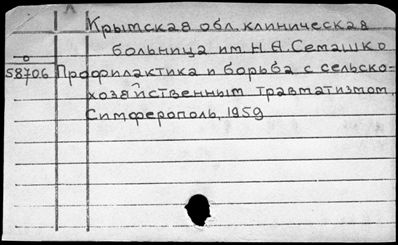 А
Крымская обл. клиническая
больница им. Н.А. Семашко
58706 Профилактика и борьба с сельско-
хозяйственным травматизмом.
Симферополь, 1959